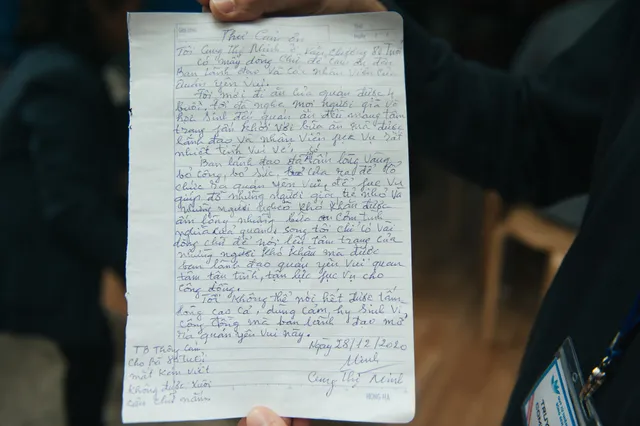 Thư Cảm ơn
Tôi Cung Thị Minh ở Văn Chương 84 tuổi
có mấy dòng chữ để cảm ơn đến
Ban lãnh đạo và các nhân viên của
quán yên vui.
Tôi mới đi ăn của quán được 4
buổi, tôi đã nghe mọi người già và
học sinh đến quán ăn đều mang tâm
trạng phấn khởi với bữa ăn mà được
lãnh đạo và nhân viên fục vụ rất
nhiệt tình vui vẻ.
Ban lãnh đạo đã tấm lòng vàng
bỏ công, bỏ sức, của ra để tổ
chức ra quán yên vui, để fục vụ
giúp đỡ những người già trẻ nhỏ và
những người nghèo khó khăn được
ăn lòng những bữa cơm tình
nghĩa của quán, song tôi chỉ có vài
dòng chữ để nói lên tâm trạng của
những người khó khăn mà được
ban lãnh đạo quán yên vui quan
tâm tận tình, tận lực fục vụ cho
công đồng.
Tôi không thể nói hết được tấm
lòng cao cả, dũng cảm, hy sinh vì
cộng đồng mà ban lãnh đạo mở
ra quán yên vui này.
Ngày 28/12/2020
Minh
Cung Thị Minh
TB Thông cảm
cho Bà 84 tuổi
mắt kém viết
không được xuôi
câu chữ
HONG HA